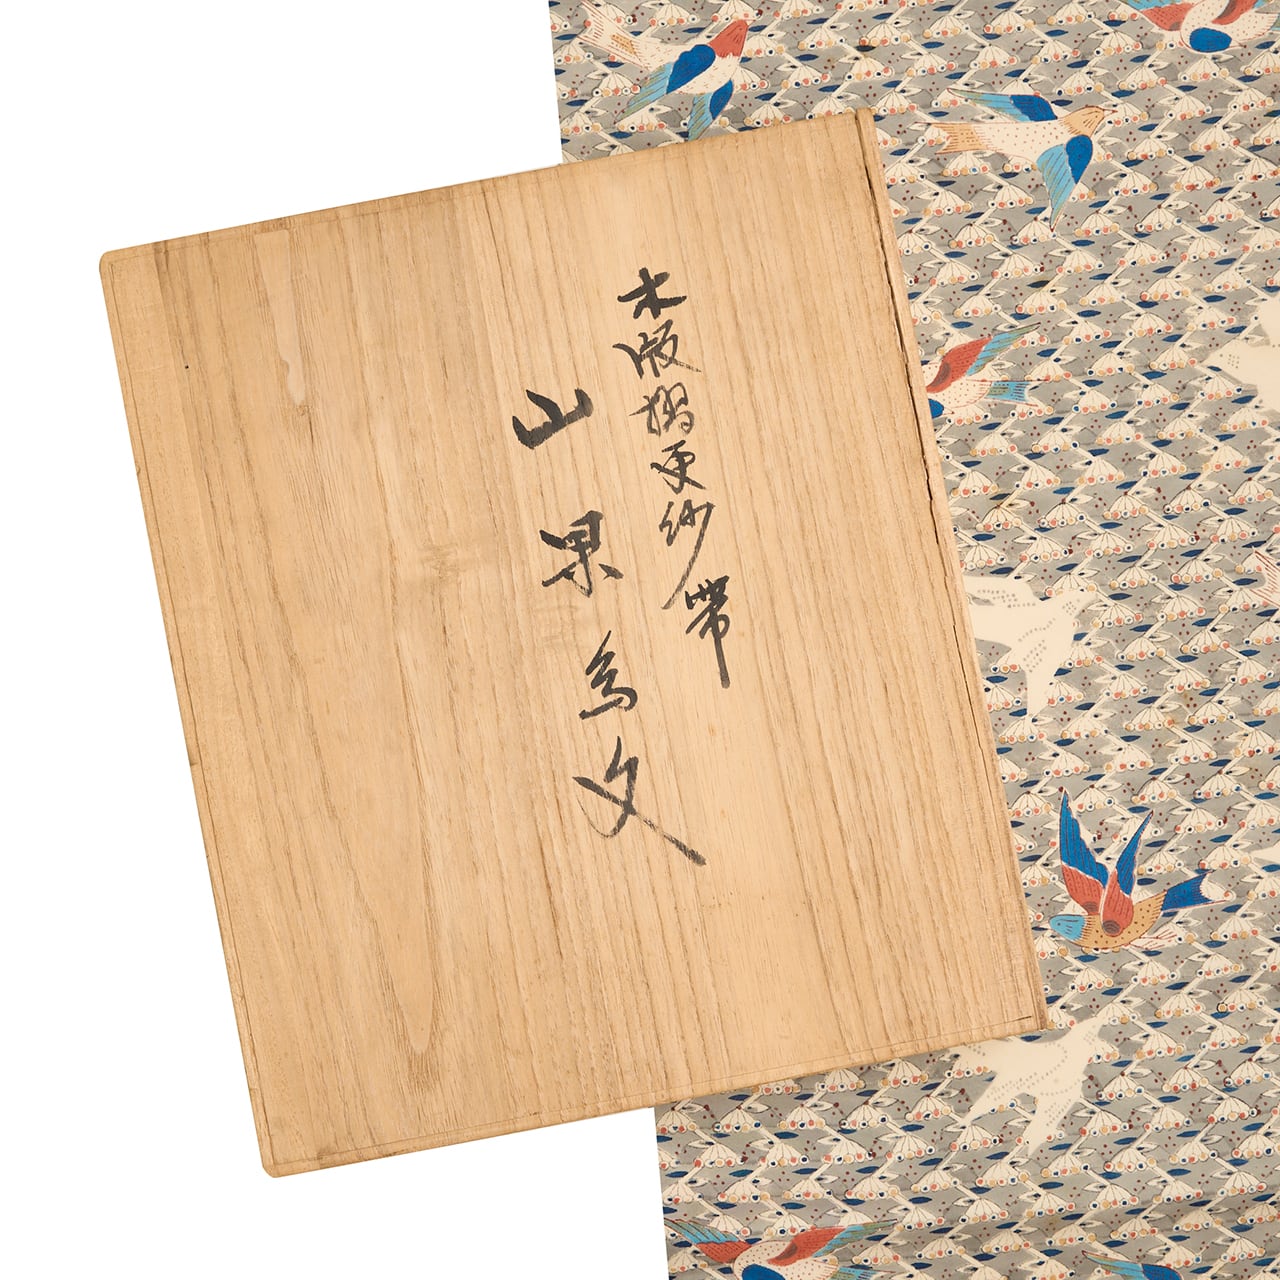 木版摺更紗帯
山果鳥文